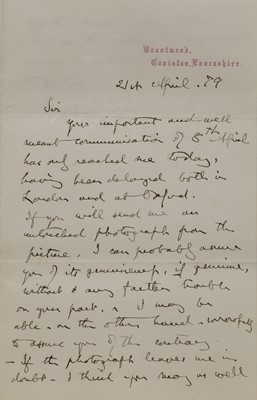 Brantwood,
Coniston, Lancashire.
21st April. 79
Sir
your important and well
meant communication of 8th April
has only reached me today,
having been delayed both in
London and at Oxford.
If you will send me an
untouched photograph from the
picture, I can probably assure
you of its genuineness, if genuine,
without any further trouble
on your part. I may be
able - on the other hand - sorrowfully
to assure you of the contrary
- If the photograph leaves me in
doubt - I think you may as well